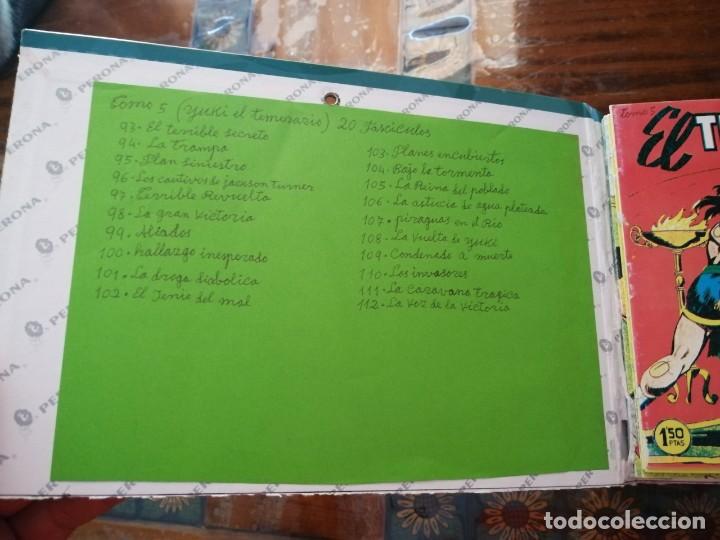 Tomo 5 (Yuki el temerario) 20 Fasciculos
93. El terrible secreto
94. La Trampa
95. Plan siniestro
96. Los cautivos de Jackson Turner
97. Terrible Revuelta
98. La gran Victoria
99. Aliados
100. hallazgo inesperado
101. La droga diabolica
102. El Jenio del mal
103. Planes encubiertos
104. Bajo la tormenta
105. La Reina del poblado
106. La astucia de agua plateada
107. piraguas en el Rio
108. La Vuelta de Yuki
109. Condenado a muerte
110. Los invasores
111. La Caravana Tragica
112. La Voz de la Victoria
PERONA
Tomo 5
El T
1'50
PTAS
todocoleccion